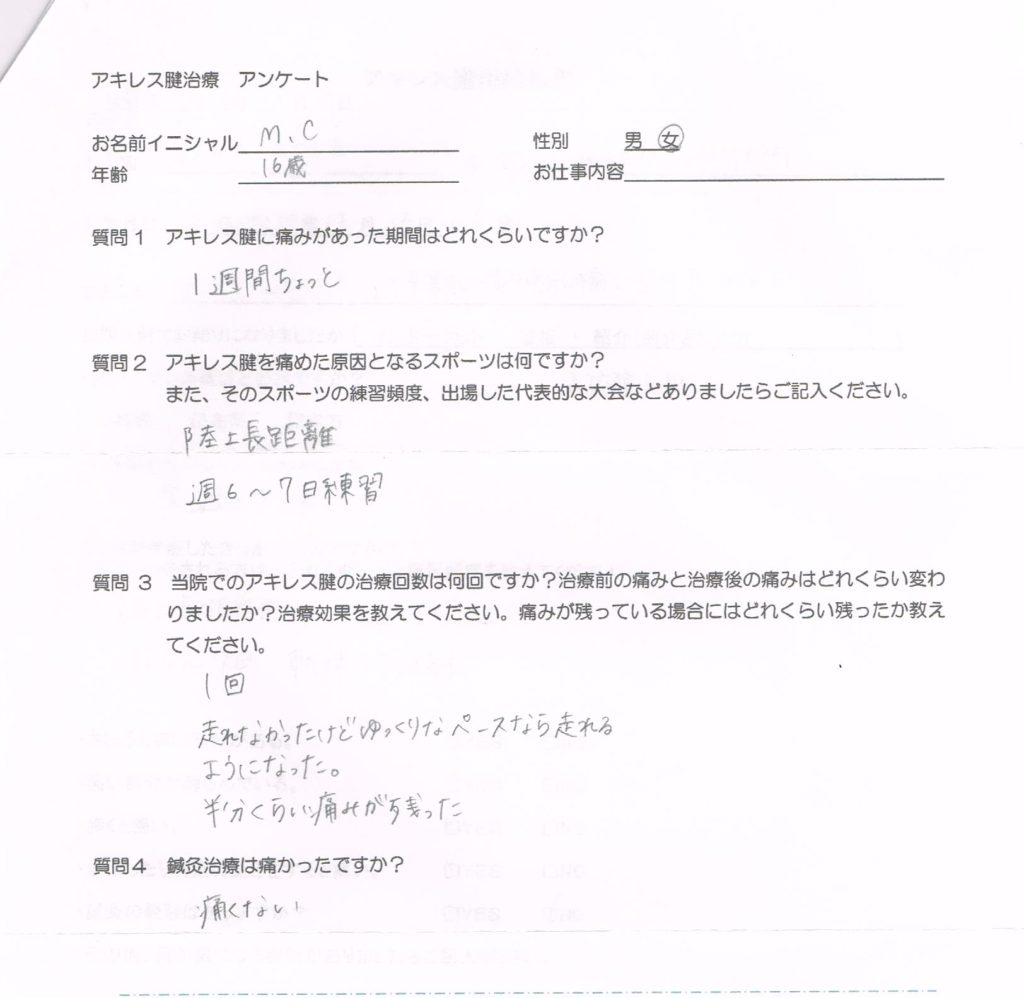 アキレス腱治療 アンケート
お名前イニシャル M、C 性別 男 女
年齢 16歳 お仕事内容
質問1 アキレス腱に痛みがあった期間はどれくらいですか?
1週間ちょっと
質問2 アキレス腱を痛めた原因となるスポーツは何ですか?
また、そのスポーツの練習頻度、出場した代表的な大会などありましたらご記入ください。
陸上長距離
週6~7日練習
質問3 当院でのアキレス腱の治療回数は何回ですか?治療前の痛みと治療後の痛みはどれくらい変わ
りましたか?治療効果を教えてください。痛みが残っている場合にはどれくらい残ったか教え
てください。
1回
走れなかったけどゆっくりなペースなら走れる
ようになった。
半分くらい痛みが残った
質問4 鍼灸治療は痛かったですか?
痛くない